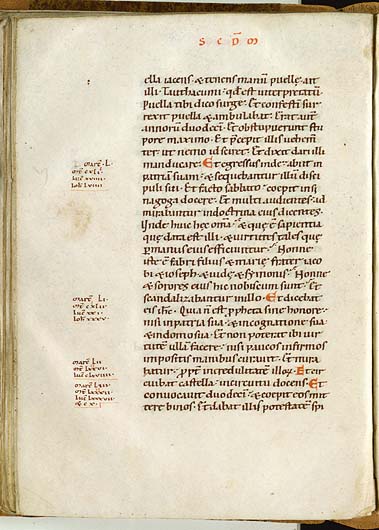 S C D M
ella iacens & tenens manu puelle ait
illi. qd est interpretatu
Puella tibi dico surge. Et confestim sur
rexit puella & ambulabat. Erat aut
annoru duodeci. Et obstupuerunt stu
pore maximo. Et pcepit illis uehem
ter ut nemo id sciret. Et dixit dari illi
manducare. Et egressus inde abiit in
patria suam. & sequebantur illum disci
puli sui. Et facto sabbato coepit insi
nagoga docere. Et multi audientes ad
mirabantur indoctrina eius dicentes.
Unde huic hec oma. & que e sapientia
que data est illi. & uirtutes tales que
p manus eius efficiuntur. Nonne
iste e fabri filius & marie frater iaco
bi & ioseph & iude & symonis. Nonne
& sorores eius hic nobiscum sunt. Et
scandalizabantur in illo. Et dicebat
eis ihc. Quia n est ppheta sine honore
nisi inpatria sua & incognatione sua
& indomo sua. Et non poterat ibi uir
tute ulla facere. nisi paucos infirmos
impositis manibus curauit. Et mira
batur ppt incredulitate illoru. Et cir
cuibat castella incircuitu docens. Et
conuocauit duodeci. & coepit eos mit
tere binos. Et dabat illis potestatem spi